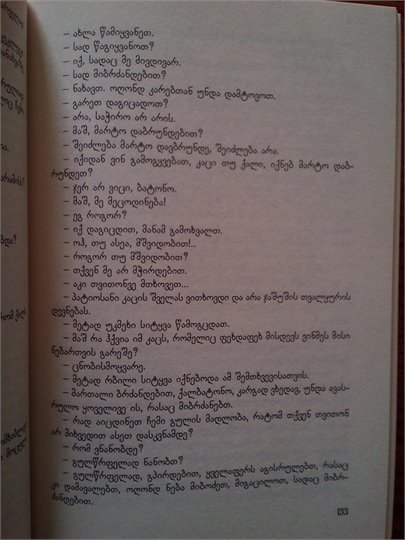 – ახლა წამიყვანეთ.
– სად წაგიყვანოთ?
– იქ, სადაც მე მივდივარ.
– სად მიბრძანდებით?
– ნახავთ. ოღონდ კარებთან უნდა დამტოვოთ.
– გარეთ დაგიცადოთ?
– არა, საჭირო არ არის.
– მაშ, მარტო დაბრუნდებით?
– შეიძლება მარტო დავბრუნდე, შეიძლება არა.
– იქიდან ვინ გამოგყვებათ, კაცი თუ ქალი, იქნებ მარტო დაბ-
რუნდეთ?
– ჯერ არ ვიცი, ბატონო.
– მაშ, მე მეცოდინება!
– ეგ როგორ?
– იქ დაგიცდით, მანამ გამოხვალთ.
– ოჰ, თუ ასეა, მშვიდობით!..
– როგორ თუ მშვიდობით?
– თქვენ მე არ მჭირდებით.
– აკი თვითონვე მთხოვეთ...
– პატიოსანი კაცის შველას ვითხოვდი და არა ჯაშუშის თვალყურის
დევნებას.
– მეტად უკმეხი სიტყვა წამოგცდათ.
– მაშ რა ჰქვია იმ კაცს, რომელიც ფეხდაფეხ მისდევს ვინმეს მისი
ნებართვის გარეშე?
– ცნობისმოყვარე.
– მეტად რბილი სიტყვა იქნებოდა ამ შემთხვევისათვის.
– მართალი ბრძანდებით, ქალბატონო, კარგად ვხედავ, უნდა ავას-
რულო ყოველივე ის, რასაც მიბრძანებთ.
– რად აიცდინეთ ჩემი გულის მადლობა, რატომ თქვენ თვითონ
არ მიხვედით ასეთ დასკვნამდე?
– რომ ვნანობდე?
– გულწრფელად ნანობთ?
– გულწრფელად, გპირდებით, ყველაფერს აგისრულებთ, რასაც
კი დამავალებთ, ოღონდ ნება მიბოძეთ, მიგაცილოთ, სადაც მიბრ-
ძანდებით.
133